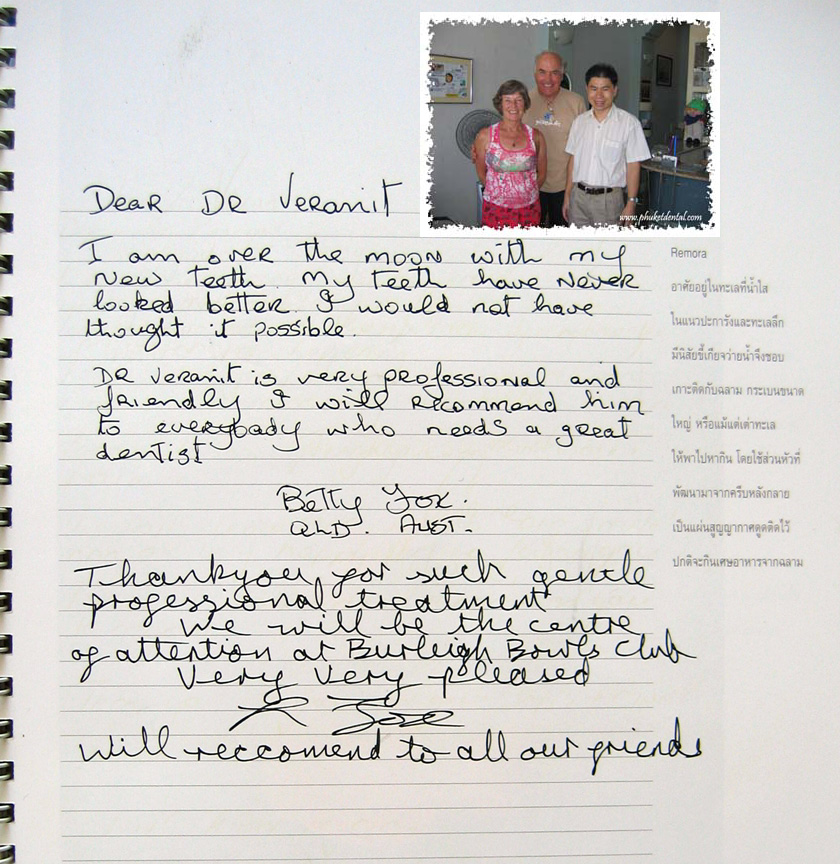 www.phuketdental.com
Dear DR Veranit
I am over the moon with my
new teeth. my teeth have never
looked better. I would not have
thought it possible.
DR Veranit is very professional and
friendly I will recommend him
to everybody who needs a great
dentist
Betty Fox.
QLD. AUST.
Thankyou for such gentle
professional treatment
We will be the centre
of attention at Burleigh Bowls Club
Very Very pleased
Will reccomend to all our friends
Remora
อาศัยอยู่ในทะเลที่น้ำใส
ในแนวปะการังและทะเลลึก
มีนิสัยขี้เกียจว่ายน้ำจึงชอบ
เกาะติดกับฉลาม กระเบนขนาด
ใหญ่ หรือแม้แต่เต่าทะเล
ให้พาไปหากิน โดยใช้ส่วนหัวที่
พัฒนามาจากครีบหลังกลาย
เป็นแผ่นสูญญากาศดูดติดไว้
ปกติจะกินเศษอาหารจากฉลาม